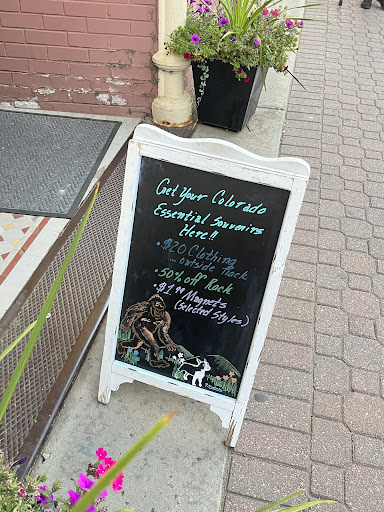 Get Your Colorado
Essential Souvenirs
Here!!
• $20 Clothing
...outside Rack
• 50% off Rack
• $1.99 Magnets
(Selected Styles)